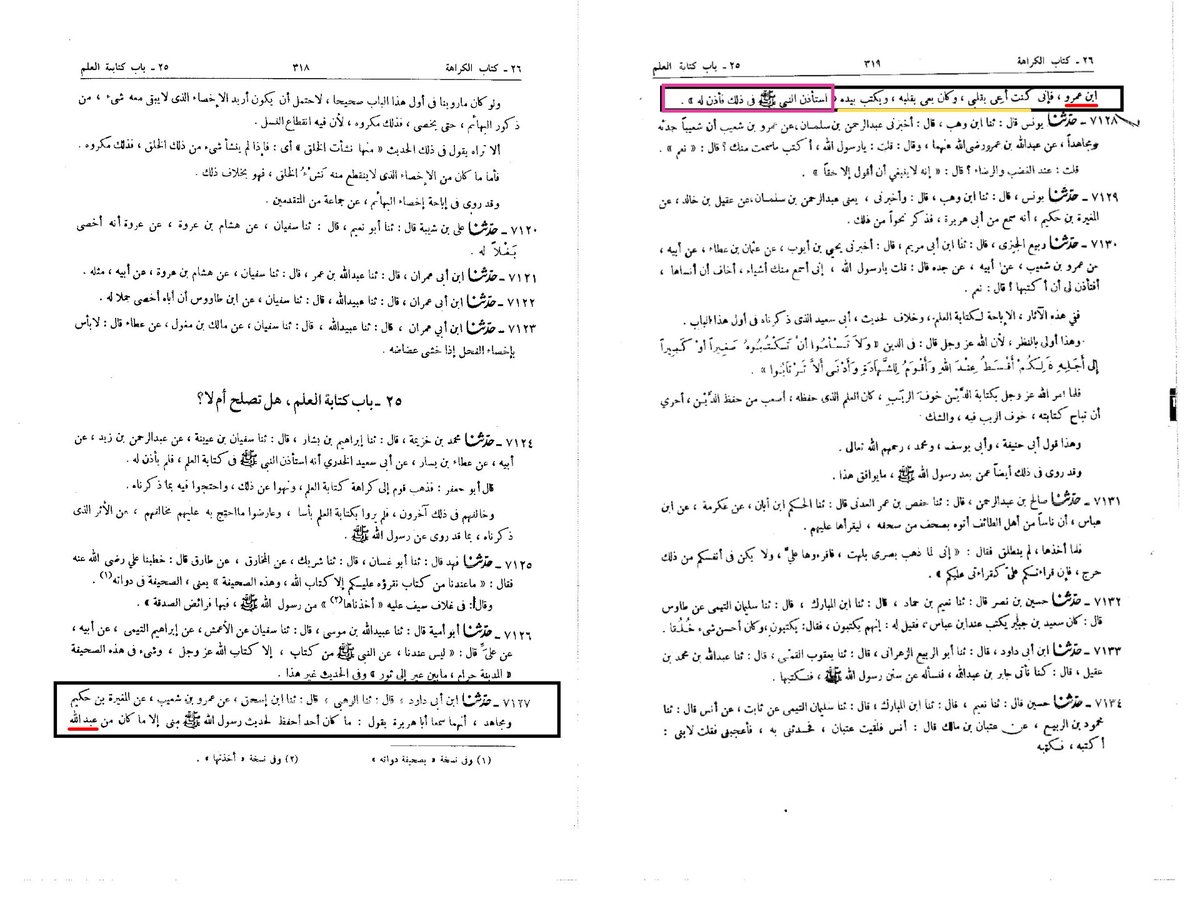 ٢٦ ـ كتاب الكراهة ٣١٨ ٢٥ ـ باب كتابة العلم
ولو كان ماروينا فى أول هذا الباب صحيحا ، لاحتمل أن يكون أريد الإخصاء الذى لايبقى معه شىء ، من
ذكور البهائم ، حتى يخصى ، فذلك مكروه ، لأن فيه انقطاع النسل .
ألا تراه يقول فى ذلك الحديث « منها نشأت الخلق » أى : فإذا لم ينشأ شىء من ذلك الخلق ، فذلك مكروه .
فأما ما كان من الإخصاء الذى لاينقطع منه نَشْءُ الخلق ، فهو بخلاف ذلك .
وقد روى فى إباحة إخصاء البهائم ، عن جماعة من المتقدمين .
٧١٢٠ ـ حدّثنا على بن شيبة قال : ثنا أبو نعيم ، قال : ثنا سفيان ، عن هشام بن عروة ، عن عروة أنه أخصى
بَغْلاً له .
٧١٢١ ـ حدّثنا ابن أبى عمران ، قال : ثنا عبدالله بن عمر ، قال : ثنا سفيان ، عن هشام بن عروة ، عن أبيه ، مثله .
٧١٢٢ ـ حدّثنا ابن أبى عمران ، قال : ثنا عبيدالله ، قال : ثنا سفيان ، عن ابن طاووس أن أباه أخصى جملا له .
٧١٢٣ ـ حدّثنا ابن أبي عمران ، قال : ثنا عبيدالله ، قال : ثنا سفيان ، عن مالك بن مغول ، عن عطاء قال : لابأس
بإخصاء الفحل إذا خشى عضاضه .
٢٥ ـ باب كتابة العلم ، هل تصلح أم لا؟
٧١٢٤ ـ حدّثنا محمد بن خزيمة ، قال : ثنا إبراهيم بن بشار ، قال : ثنا سفيان بن عيينة ، عن عبدالرحمن بن زيد ، عن
أبيه ، عن عطاء بن يسار ، عن أبي سعيد الخدري أنه استأذن النبى ﷺ فى كتابة العلم ، فلم يأذن له .
قال أبو جعفر : فذهب قوم إلى كراهة كتابة العلم ، ونهوا عن ذلك ، واحتجوا فيه بما ذكرناه .
وخالفهم فى ذلك آخرون ، فلم يروا بكتابة العلم بأسا ، وعارضوا مااحتج به عليهم مخالفهم ، من الأثر الذى
ذكرناه ، بما قد روى عن رسول الله ﷺ .
٧١٢٥ ـ حدّثنا فهد قال : ثنا أبو غسان ، قال : ثنا شريك ، عن المخارق ، عن طارق قال : خطبنا علي رضى الله عنه
فقال : « ماعندنا من كتاب نقرؤه عليكم إلا كتاب الله ، وهذه الصحيفة » يعنى ، الصحيفة فى دواته(١) .
وقال : فى غلاف سيف عليه « أخذناها(٢) » من رسول الله ﷺ ، فيها فرائض الصدقة » .
٧١٢٦ ـ حدّثنا أبو أمية قال : ثنا عبيدالله بن موسى ، قال : ثنا سفيان عن الأعمش ، عن إبراهيم التيمى ، عن أبيه ،
عن علىّ قال : « ليس عندنا ، عن النبى ﷺ من كتاب ، إلا كتاب الله عز وجل ، وشىء فى هذه الصحيفة
« المدينة حرام ، مابين عير إلى ثور » وفى الحديث غير هذا .
٧١٢٧ ـ حدّثنا ابن أبى داود ، قال : ثنا الوهبى ، قال : ثنا ابن إسحق ، عن عمرو بن شعيب ، عن المغيرة بن حكيم
ومجاهد ، أنهما سمعا أبا هريرة يقول : ما كان أحد أحفظ لحديث رسول الله ﷺ منى إلا ما كان من عبدالله
(١) وفى نسخة « بصحيفة دواته » (٢) وفى نسخة « أخذتها » .
٢٦ ـ كتاب الكراهة ٣١٩ ٢٥ ـ باب كتابة العلم
ابن عمرو ، فإنى كنت أعِى بقلبى ، وكان يعى بقلبه ، ويكتب بيده « استأذن النبى ﷺ فى ذلك فأذن له » .
٧١٢٨ ـ حدّثنا يونس قال : ثنا ابن وهب ، قال : أخبرنى عبدالرحمن بن سلمان ، عن عمرو بن شعيب أن شعيباً حدثه
ومجاهداً ، عن عبدالله بن عمرو رضى الله عنهما ، وقال : قلت : يارسول الله ، أكتب ماسمعت منك ؟ قال : « نعم » .
قلت : عند الغضب والرضاء ؟ قال : « إنه لاينبغى أن أقول إلا حقاً » .
٧١٢٩ ـ حدّثنا يونس ، قال : ثنا ابن وهب ، قال : وأخبرنى ، يعنى عبدالرحمن بن سلمان ، عن عقيل بن خالد ، عن
المغيرة بن حكيم ، أنه سمع من أبى هريرة ، فذكر نحواً من ذلك .
٧١٣٠ ـ حدّثنا ربيع الجيزى ، قال : ثنا ابن أبى مريم ، قال : أخبرنى يحيى بن أيوب ، عن عثمان بن عطاء ، عن أبيه ،
عن عمرو بن شعيب ، عن أبيه ، عن جده قال : قلت يارسول الله ، إنى أسمع منك أشياء ، أخاف أن أنساها ،
أفتأذن لى أن أكتبها ؟ قال : نعم .
ففي هذه الآثار ، الإباحة لكتابة العلم ، وخلاف لحديث ، أبى سعيد الذى ذكرناه فى أول هذا الباب .
وهذا أولى بالنظر ، لأن الله عز وجل قال : فى الدين « وَلاَ تَسْأَمُوا أنْ تَكْتُبُوهُ صَغِيراً أوْ كَبِيراً
إلَى أجَلِهِ ذَلِكُمْ أقْسَطُ عِنْدَ اللهِ وَأقْوَمُ لِلشَّهَادَةِ وَأدْنَى ألاَّ تَرْتَابُوا » .
فلما أمر الله عز وجل بكتابة الدَّيْن خوفَ الريْب ، كان العلم الذى حفظه ، أصعب من حفظ الدَّيْن ، أحرى
أن تباح كتابته ، خوف الريب فيه ، والشك
وهذا قول أبى حنيفة ، وأبى يوسف ، ومحمد ، رحمهم الله تعالى .
وقد روى فى ذلك أيضاً عمن بعد رسول الله ﷺ ، مايوافق هذا .
٧١٣١ ـ حدّثنا صالح بن عبدالرحمن ، قال : ثنا حفص بن عمر العدنى قال : ثنا الحكم ابن أبان ، عن عكرمة ، عن ابن
عباس ، أن ناساً من أهل الطائف أتوه بصحف من صحفه ، ليقرأها عليهم .
فلما أخذها ، لم ينطلق فقال : « إنى لما ذهب بصرى بلهت ، فاقرءوها علىّ ، ولا يكن فى أنفسكم من ذلك
حرج ، فإن قراءتكم علىّ كقراءتى عليكم » .
٧١٣٢ ـ حدّثنا حسين بن نصر قال : ثنا نعيم بن حماد ، قال : ثنا ابن المبارك ، قال : ثنا سليمان التيمى عن طاوس
قال : كان سعيد بن جبير يكتب عند ابن عباس ، فقيل له : إنهم يكتبون ، فقال : يكتبون ، وكان أحسن شىء خُلُقا .
٧١٣٣ ـ حدّثنا ابن أبي داود ، قال : ثنا أبو الربيع الزهرانى ، قال : ثنا يعقوب القمّى ، قال : ثنا عبدالله بن محمد بن
عقيل ، قال : كنا نأتى جابر بن عبدالله ، فنسأله عن سنن رسول الله ﷺ ، فنكتبها .
٧١٣٤ ـ حدّثنا حسين قال : ثنا نعيم ، قال : ثنا ابن المبارك ، قال : ثنا سليمان التيمى عن ثابت ، عن أنس قال : ثنا
محمود بن الربيع ، عن عتبان بن مالك قال : أنس فلقيت عتبان ، فحدثنى به ، فأعجبنى فقلت لابنى :
أكتبه ، فكتبه